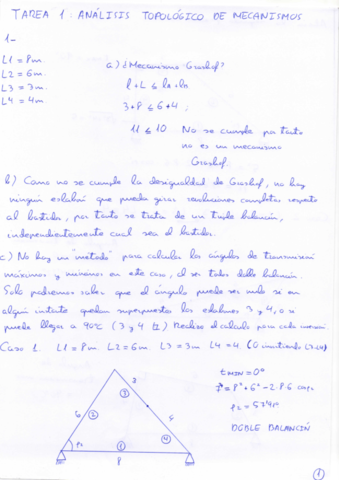 TAREA 1: ANÁLISIS TOPOLÓGICO DE MECANISMOS
1-
L1 = 8m.
L2 = 6m.
L3 = 3m.
L4 = 4m.
a) ¿Mecanismo Grashof?
l + L ≤ la + lb
3 + 8 ≤ 6 + 4;
11 ≤ 10 No se cumple por tanto
no es un mecanismo
Grashof.
b) Como no se cumple la desigualdad de Grashof, no hay
ningún eslabón que pueda girar revoluciones completas respecto
al bastidor, por tanto se trata de un triple balancín,
independientemente cual sea el bastidor.
c) No hay un "metodo" para calcular los ángulos de transmisión
máximos y mínimos en este caso, al ser todos doble balancín.
Solo podremos saber que el ángulo puede ser nulo si en
algún instante quedan superpuestos los eslabones 3 y 4, o si
puede llegar a 90º (3 y 4 ⊥) Realizo el calculo para cada inversión
Caso 1. L1 = 8m L2 = 6m L3 = 3m L4 = 4 (0
3
3
6
2
4
4
φ2
1
8
tMIN = 0º
7² = 8² + 6² - 2·8·6 cosφ2
DOBLE BALANCÍN
1